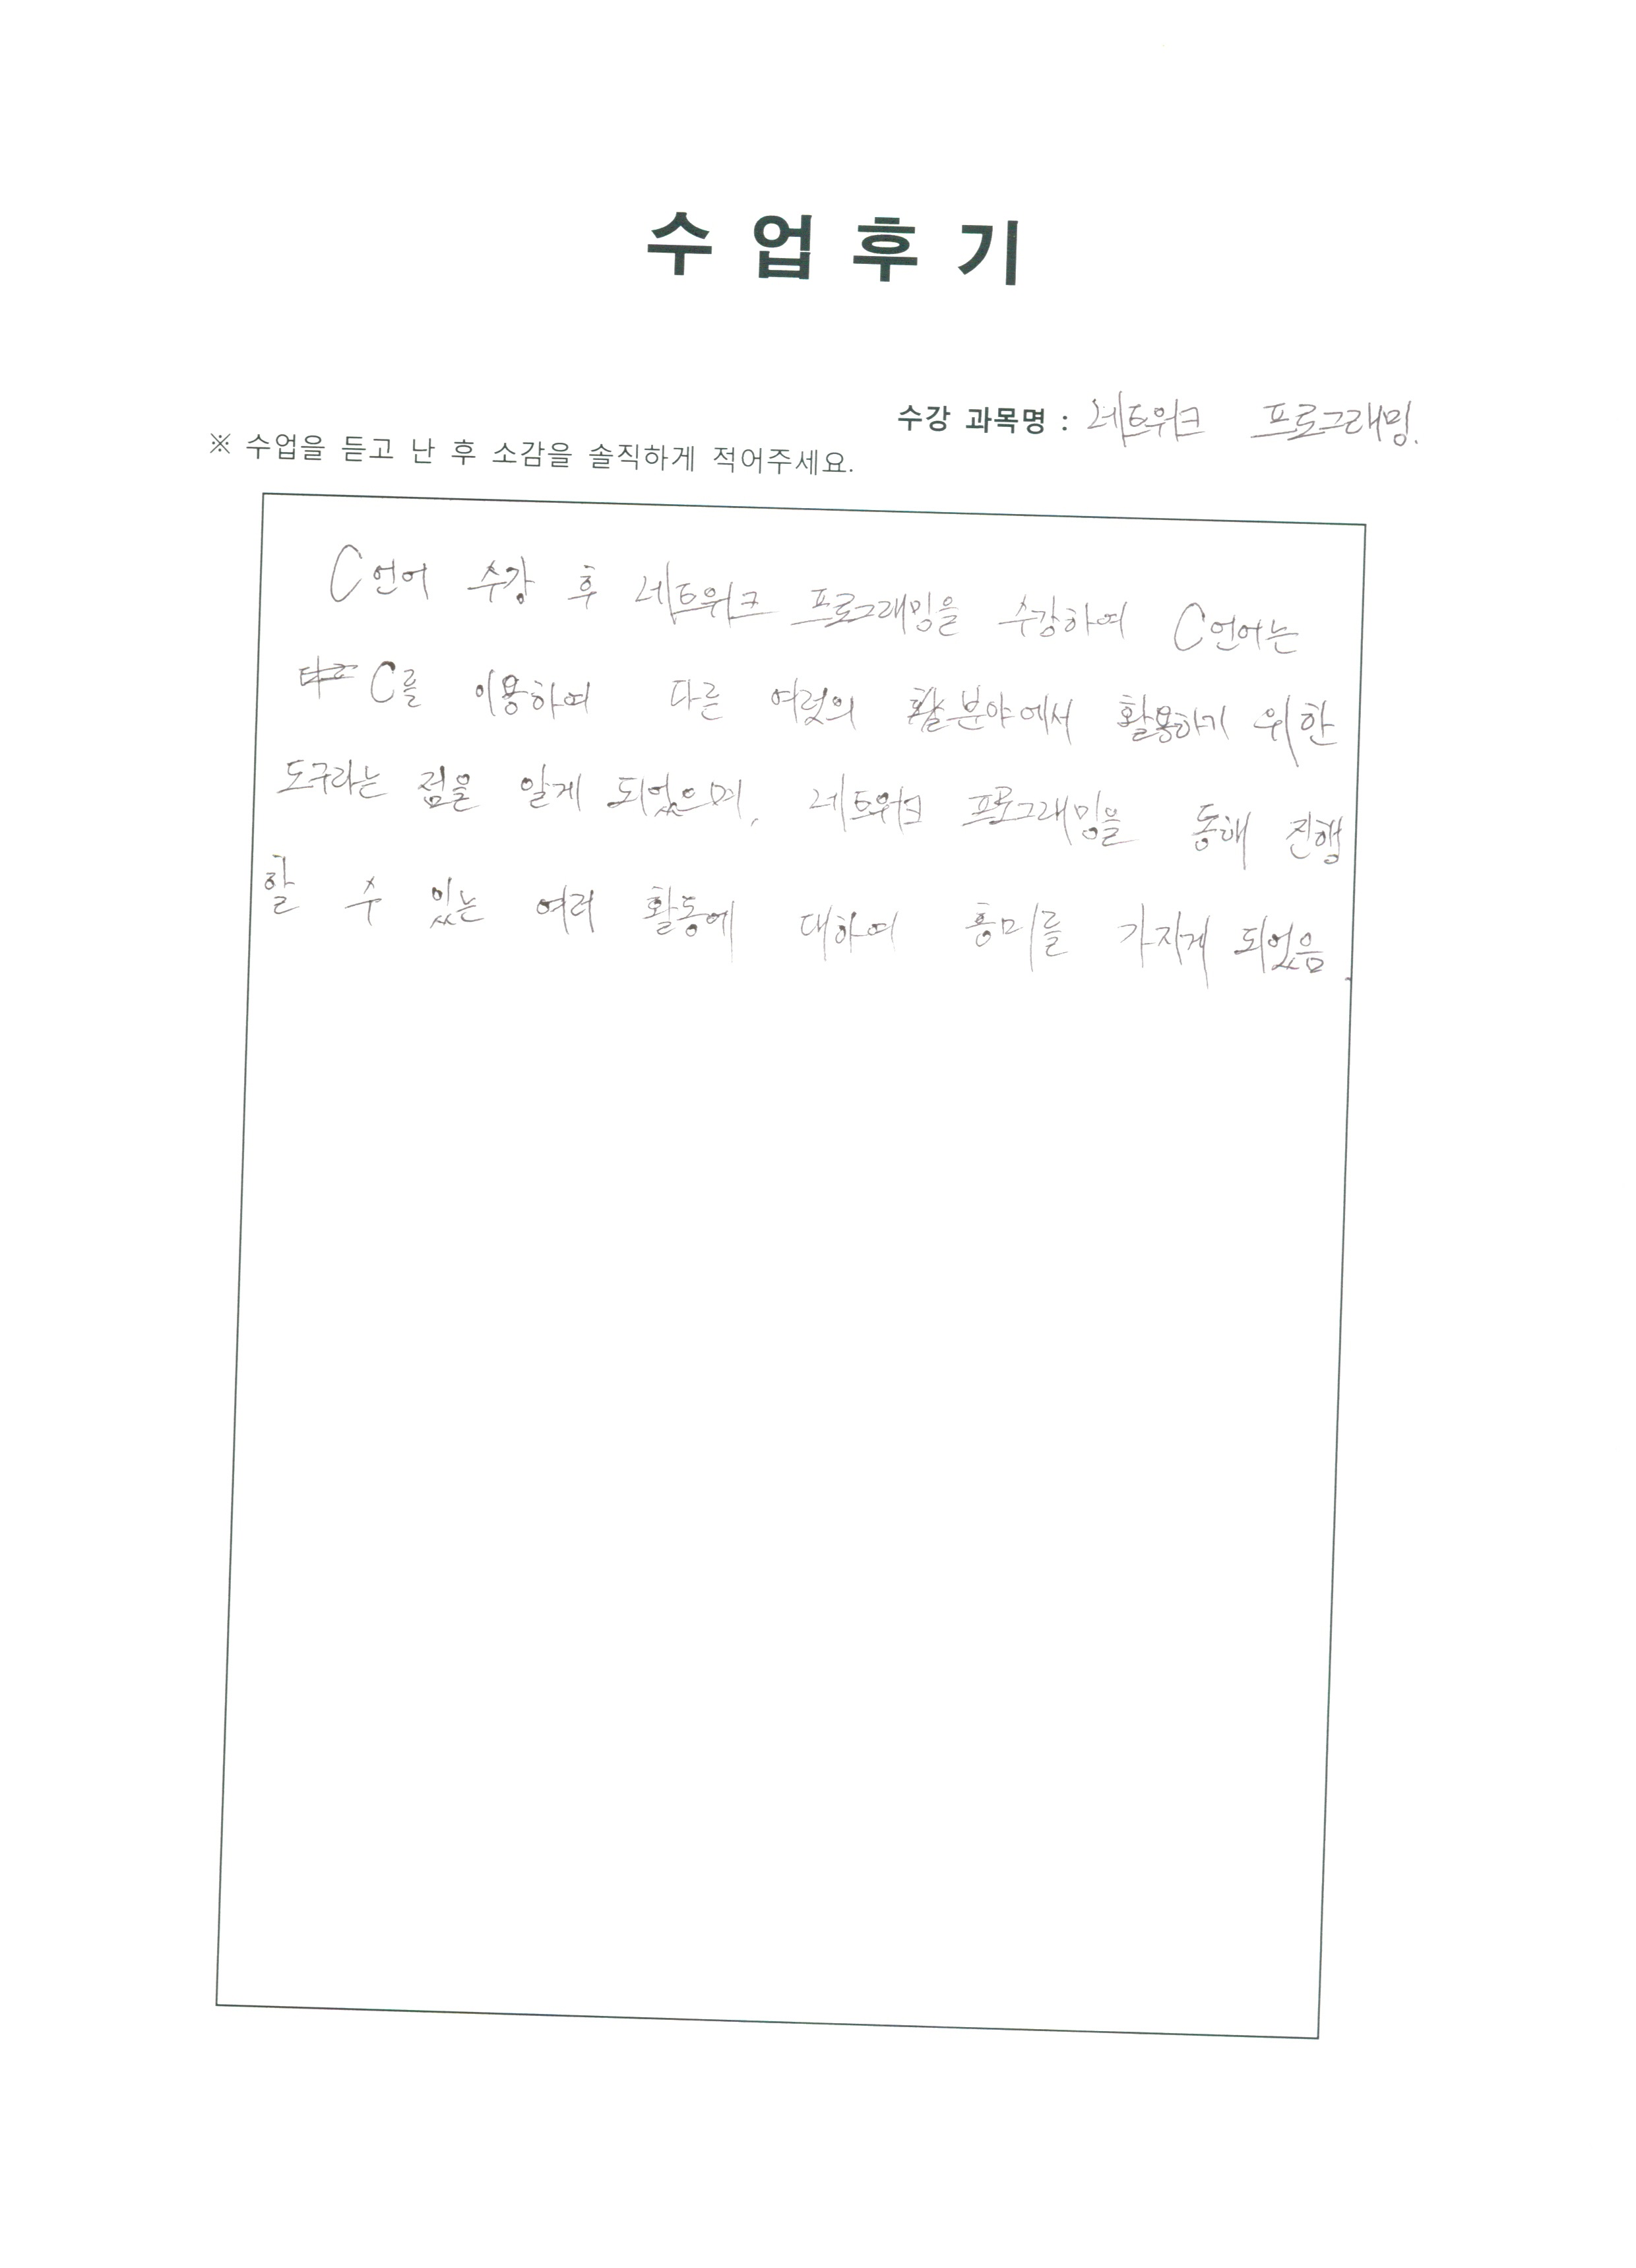 수 업 후 기
수강 과목명 : 네트워크 프로그래밍.
※ 수업을 듣고 난 후 소감을 솔직하게 적어주세요.
C언어 수강 후 네트워크 프로그래밍을 수강하여 C언어는
C를 이용하여 다른 여럿의 분야에서 활용하기 위한
도구라는 점을 알게 되었으며, 네트워크 프로그래밍을 통해 진행
할 수 있는 여러 활동에 대하여 흥미를 가지게 되었음.